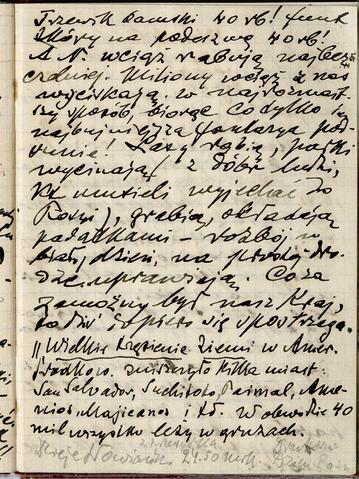 Trzewik damski 40 rb! funt
skóry na podeszwę 40 rb!
A N. wciąż rabują najbez
czelniej. Miliony wciąż z nas
wyciskają w najrozmait
szy sposób, biorąc co tylko im
najbujniejsza fantazja pod
sunie! Lasy rąbią, parki
wycinają (z dóbr ludzi,
kt. musieli wyjechać do
Rosyi), grabią, okładają
podatkami – rozbój w
biały dzień, na prostej dro-
dze uprawiają. Co za
zamożny był nasz Kraj,
to dziś dopiero się spostrzega.
Wielkie trzęsienie ziemi w Amer.
Środkow. zniszczyło kilka miast:
San Salvador, Suchitoto, Paisnal,
Mejicanos i td. W obwodzie 40
mil wszystko leży w gruzach.
24.50